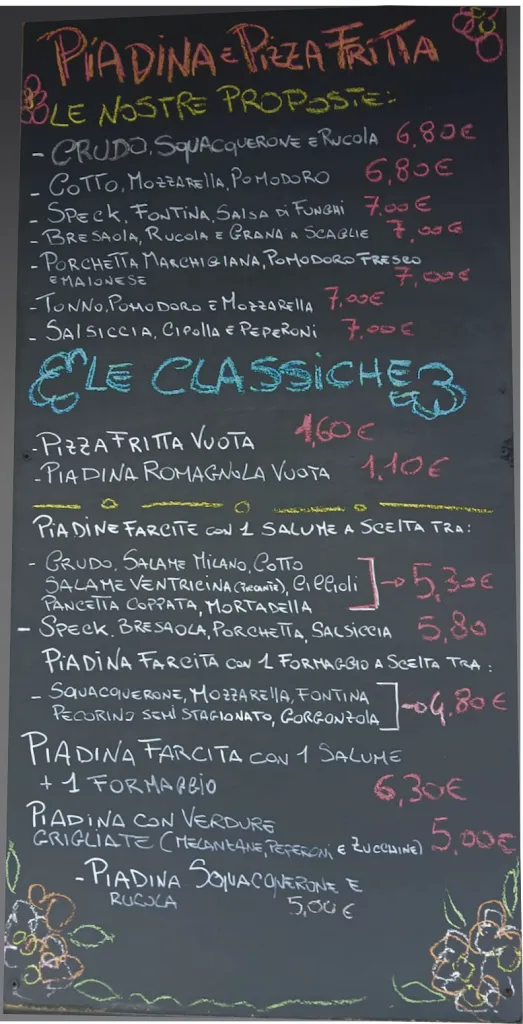 PIADINA E PIZZA FRITTA
LE NOSTRE PROPOSTE:
- CRUDO, SQUACQUERONE E RUCOLA 6,80€
- COTTO, MOZZARELLA, POMODORO 6,80€
- SPECK, FONTINA, SALSA DI FUNGHI 7,00€
- BRESAOLA, RUCOLA E GRANA A SCAGLIE 7,00€
- PORCHETTA MARCHIGIANA, POMODORO FRESCO
E MAIONESE 7,00€
- TONNO, POMODORO E MOZZARELLA 7,00€
- SALSICCIA, CIPOLLA E PEPERONI 7,00€
LE CLASSICHE
- PIZZA FRITTA VUOTA 1,60€
- PIADINA ROMAGNOLA VUOTA 1,10€
PIADINE FARCITE CON 1 SALUME A SCELTA TRA:
- CRUDO, SALAME MILANO, COTTO
SALAME VENTRICINA (PICCANTE), CICCIOLI → 5,30€
PANCETTA COPPATA, MORTADELLA
- SPECK, BRESAOLA, PORCHETTA, SALSICCIA 5,80
PIADINA FARCITA CON 1 FORMAGGIO A SCELTA TRA:
- SQUACQUERONE, MOZZARELLA, FONTINA
PECORINO SEMI STAGIONATO, GORGONZOLA → 4,80€
PIADINA FARCITA CON 1 SALUME
+ 1 FORMAGGIO 6,30€
PIADINA CON VERDURE
GRIGLIATE (MELANZANE, PEPERONI E ZUCCHINE) 5,00€
- PIADINA SQUACQUERONE E
RUCOLA 5,00€